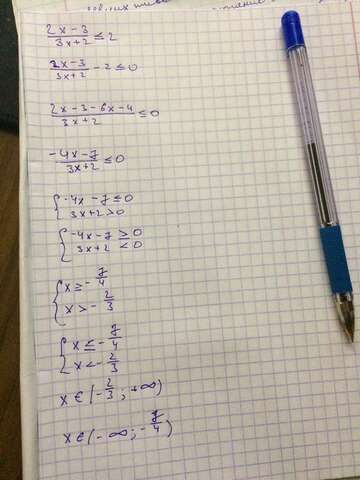 (2x-3)/(3x+2) ≤ 2
(2x-3)/(3x+2) - 2 ≤ 0
(2x-3-6x-4)/(3x+2) ≤ 0
(-4x-7)/(3x+2) ≤ 0
{ -4x-7 ≤ 0
3x+2 > 0
{ -4x-7 ≥ 0
3x+2 < 0
{ x ≥ -7/4
x > -2/3
{ x ≤ -7/4
x < -2/3
x ∈ (-2/3; +∞)
x ∈ (-∞; -7/4)